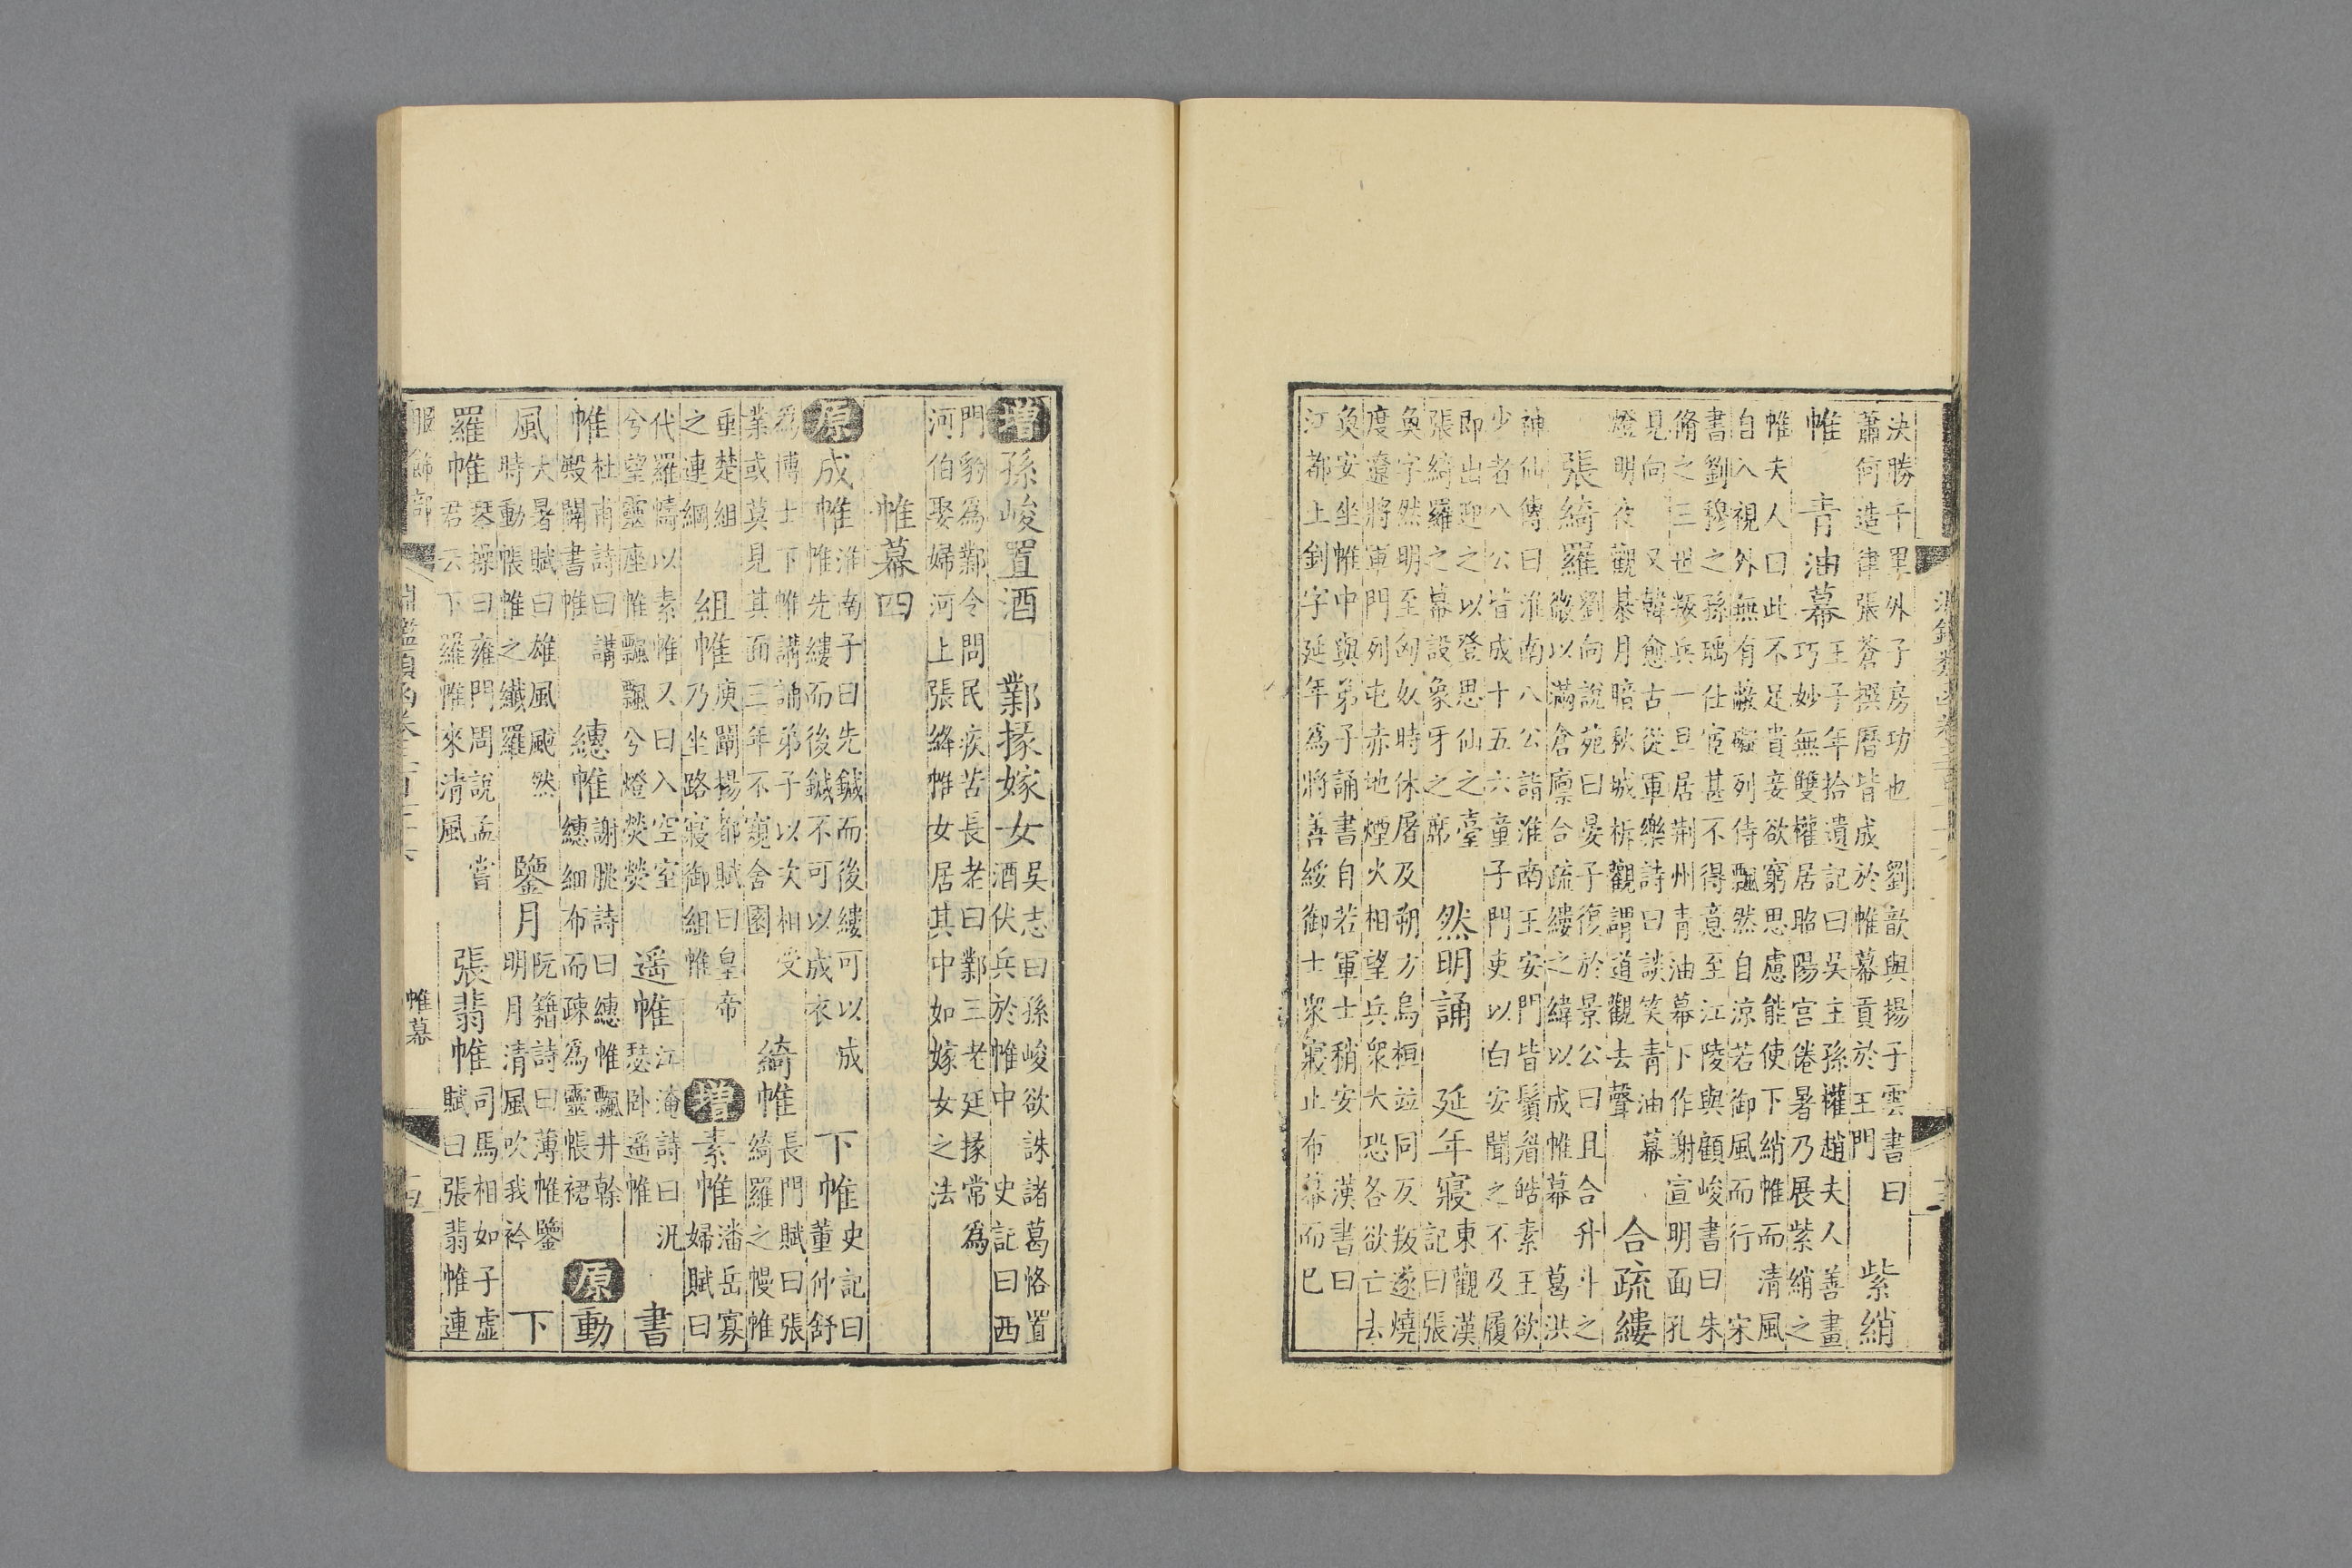 決勝千里外子房功也
蕭何造律張蒼撰曆皆成
劉歆與揚子雲書曰
於帷幕貢於王門
紫綃
帷
青油幕
王子年拾遺記曰吳主孫權趙夫人善畫
巧妙無雙權居昭陽宮倦暑乃展紫綃之
帷夫人曰此不足貴妾欲窮思慮能使下綃帷而清風
自入視外無有蔽礙列侍飄然自涼若御風而行
宋
書劉穆之孫瑀仕宦甚不得意至江陵與顧峻書曰朱
脩之三世叛兵一旦居荊州青油幕下作謝宣明面孔
見向
又韓愈古從軍樂詩曰談笑青油幕
燈明夜觀棊月暗秋城柝觀謂道觀去聲
合疏縷
張綺羅
劉向說苑曰晏子復於景公曰且合升斗之
微以滿倉廩合疏縷之緯以成帷幕
葛洪
神仙傳曰淮南八公詣淮南王安門皆鬚眉皓素王欲
少者八公皆成十五六童子門吏以白安安聞之不及履
即出迎之以登思仙之臺
張綺羅之幕設象牙之席
然明誦
延年寢
東觀漢
記曰張
奐字然明至匈奴時休屠及朔方烏桓竝同反叛遂燒
度遼將軍門列屯赤地煙火相望兵衆大恐各欲亡去
奐安坐帷中與弟子誦書自若軍士稍安
漢書曰
江都上劉字延年為將善綏御士衆寢止布幕而已
增
孫峻置酒
鄴掾嫁女
吳志曰孫峻欲誅諸葛恪置
酒伏兵於帷中
史記曰西
門豹為鄴令問民疾苦長老曰鄴三老廷掾常為
河伯娶婦河上張絳帷女居其中如嫁女之法
帷幕四
原
成帷
淮南子曰先鍼而後縷可以成
帷先縷而後鍼不可以成衣
下帷
史記曰
董仲舒
為博士下帷講誦弟子以次相受
業或莫見其面三年不窺舍園
綺帷
長門賦曰張
綺羅之幔帷
垂楚組
之連綱
組帷
庾闡揚都賦曰皇帝
乃坐路寢御組帷
增
素帷
潘岳寡
婦賦曰
代羅幬以素帷又曰入空室
兮望靈座帷飄飄兮燈熒熒
遥帷
江淹詩曰況
瑟臥遥帷
書
帷
杜甫詩曰講
殿闢書帷
繐帷
謝朓詩曰繐帷飄井榦
繐細布而疎為靈帳裙
原
動
風
大暑賦曰雄風颰然
時動帳帷之纖羅
鑒月
阮籍詩曰薄帷鑒
明月清風吹我衿
下
羅帷
琴操曰雍門周說孟嘗
君云下羅帷來清風
張翡帷
司馬相如子虛
賦曰張翡帷連
服飾部
淵鑑類函卷三百七十六
帷幕
十五